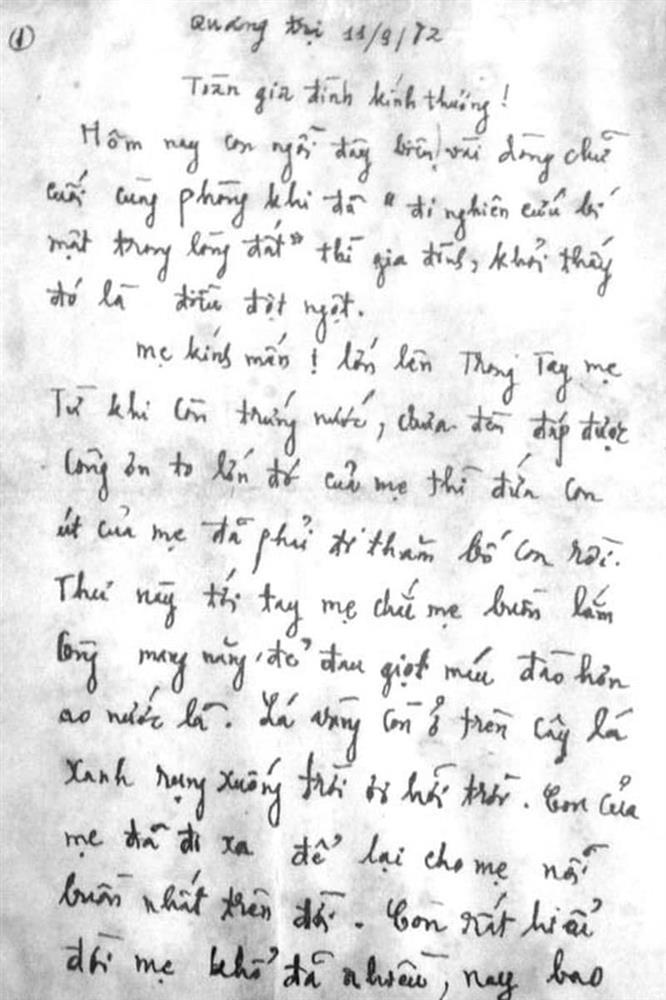 ①
Quảng trị 11/9/72
Toàn gia đình kính thương!
Hôm nay con ngồi đây biên vài dòng chữ
cuối cùng phòng khi đã "đi nghiên cứu bí
mật trong lòng đất" thì gia đình, khỏi thấy
đó là điều đột ngột.
Mẹ kính mến! lớn lên Trong Tay mẹ
Từ khi còn trứng nước, chưa đền đáp được
công ơn to lớn đó của mẹ thì đứa con
út của mẹ đã phải đi thăm bố con rồi.
Thư này tới tay mẹ chắc mẹ buồn lắm
Công mang nặng, đẻ đau giọt máu đào hơn
ao nước lã. Lá vàng còn ở trên cây lá
xanh rụng xuống trời ơi hỡi trời. Con của
mẹ đã đi xa để lại cho mẹ nỗi
buồn nhất trên đời. Con rất hiểu
đời mẹ khổ đã nhiều, nay bao